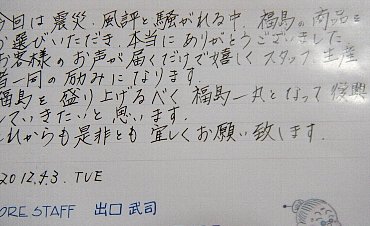 今回は震災、風評と騒がれる中、福島の商品を
お選びいただき、本当にありがとうございました。
お客様のお声が届くだけで嬉しくスタッフ、生産
者一同の励みになります。
福島を盛り上げるべく福島一丸となって復興
していきたいと思います。
これからも是非とも宜しくお願い致します。
2012.4.3. TUE
ORE STAFF 出口 武司